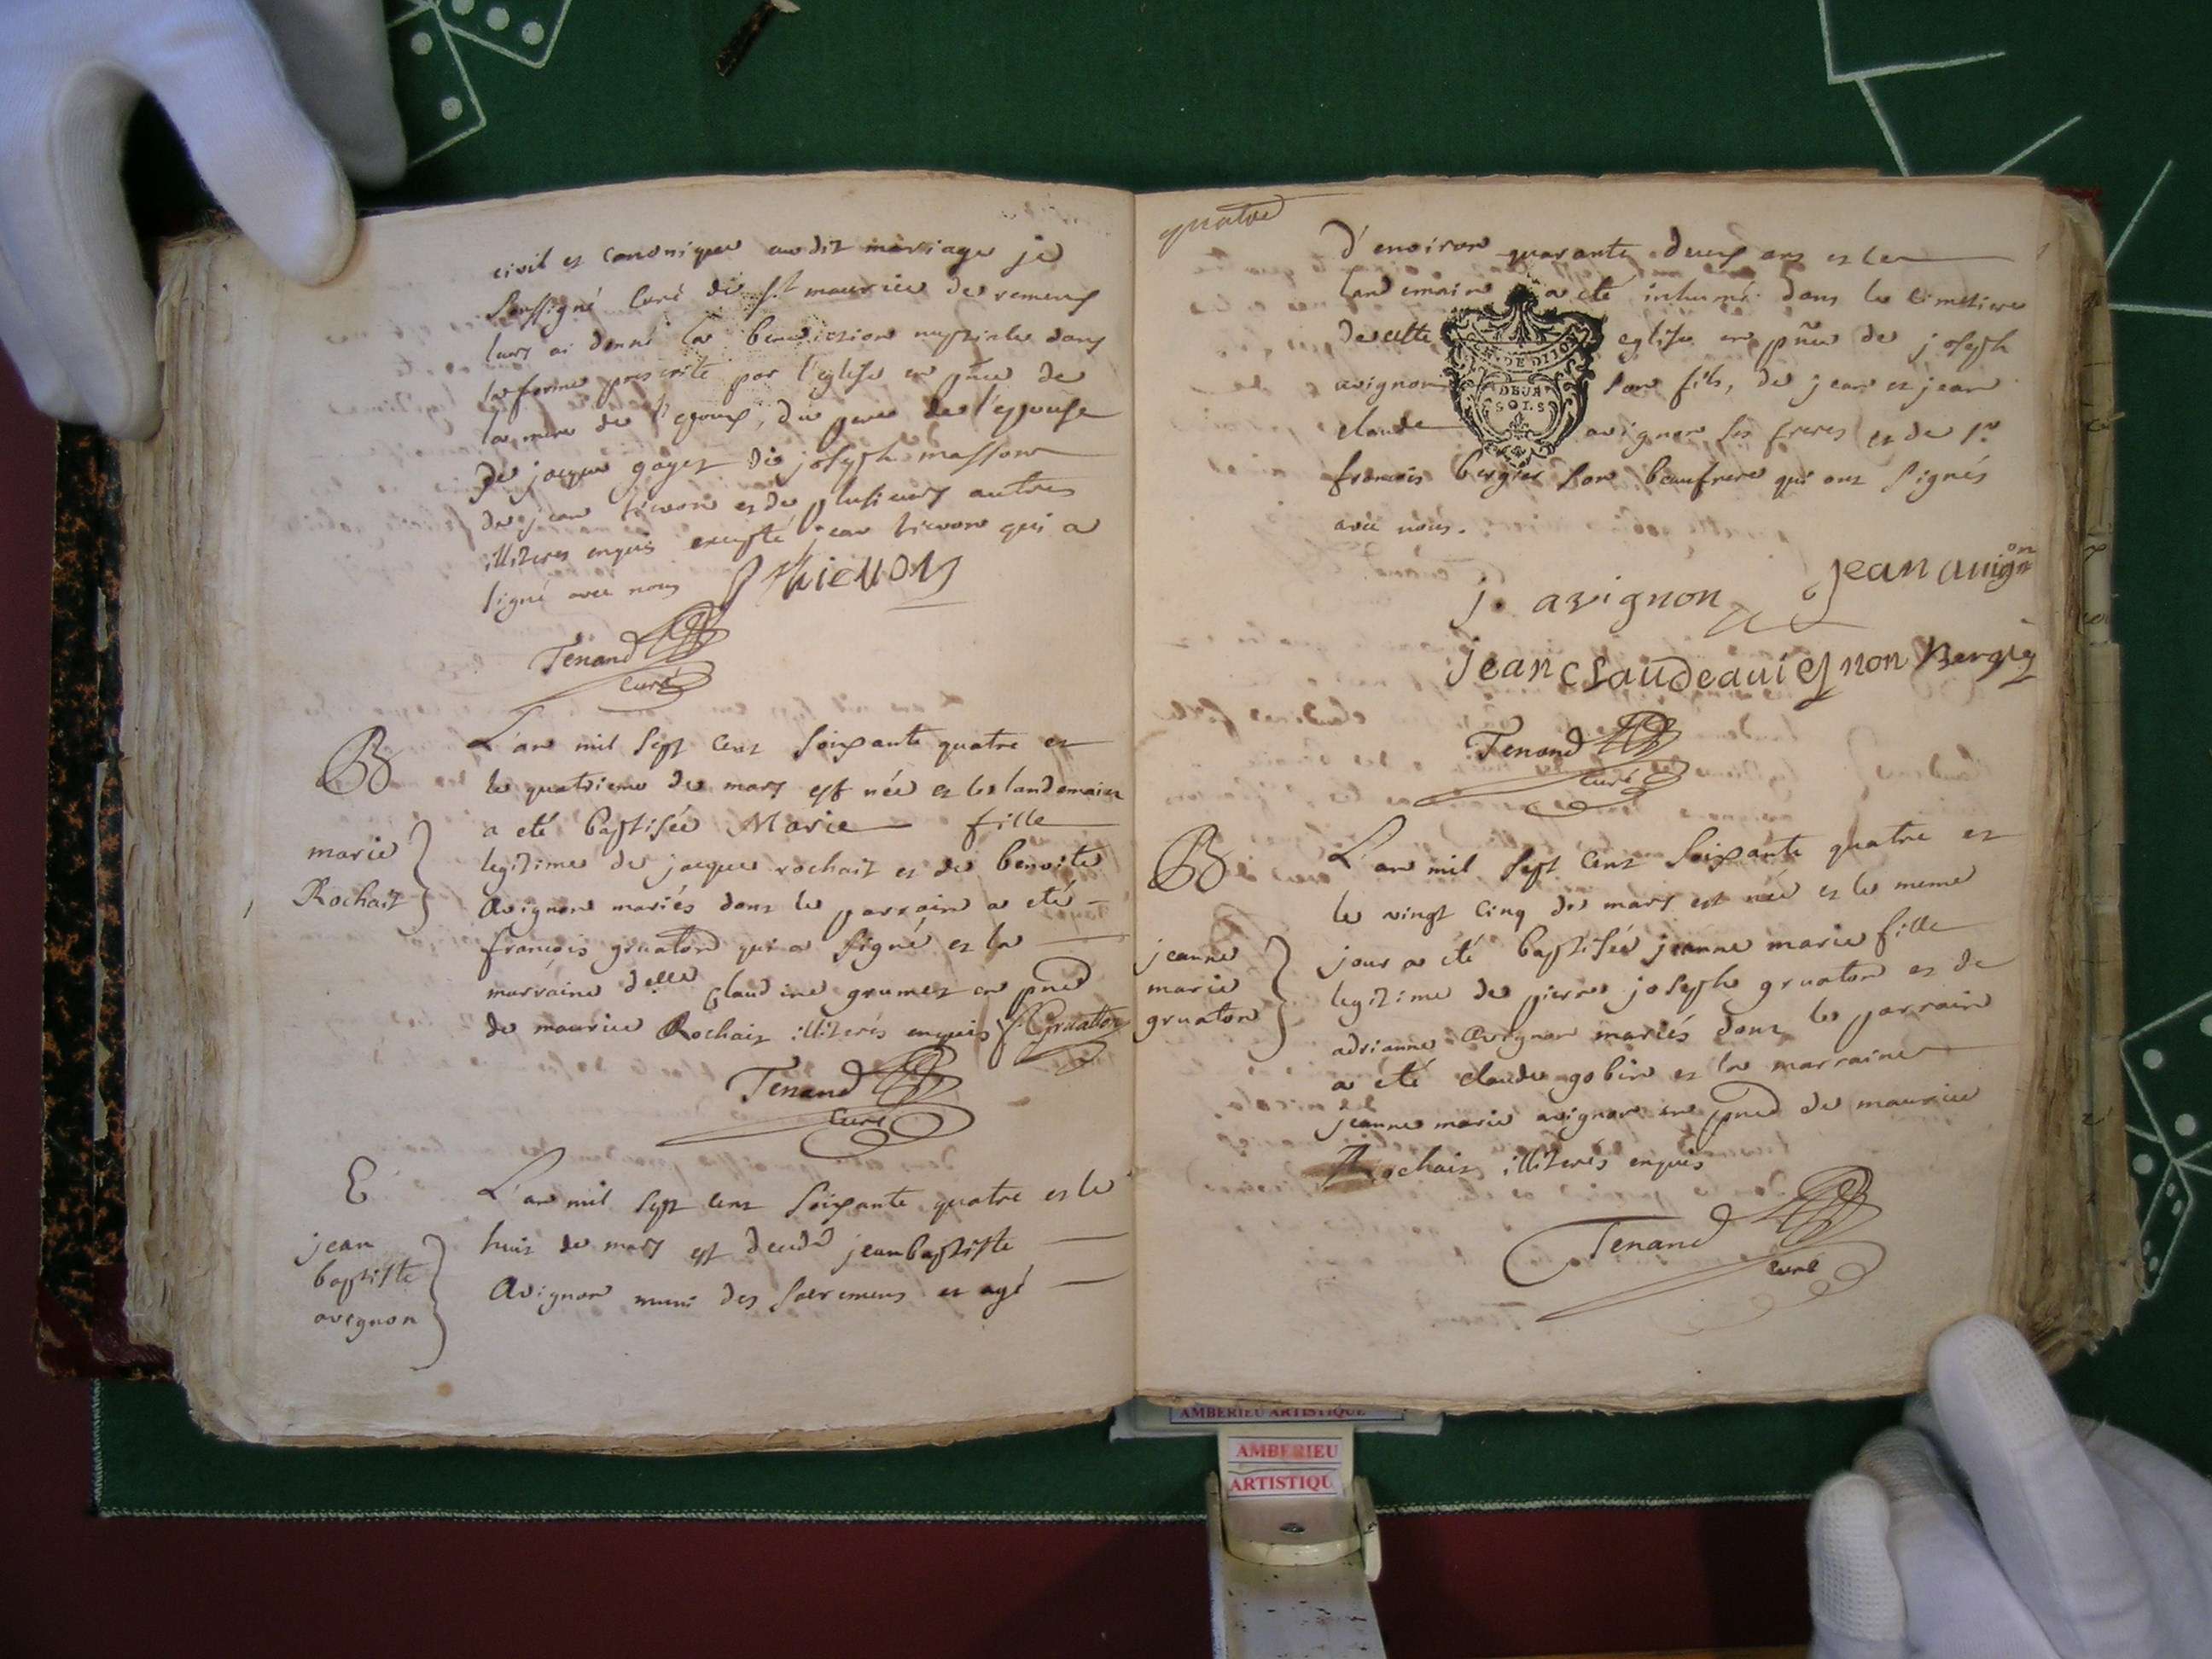 civil et canonique audit mariage je
soussigné curé de st maurice de remens
leurs ai donné la benediction nuptiale dans
la forme prescrite par l'eglise en pnce de
la mere de l'epoux, du pere de l'epouse
de jacque goyet de joseph masson
de jean tievon et de plusieurs autres
illiteres enquis excepté jean tievon qui a
signé avec nous J thievon
Tenand
curé
B
marie
Rochait
L'an mil sept cent soixante quatre et
le quatrieme de mars est née et le landemain
a eté baptisée Marie fille
legitime de jacque rochait et de benoite
avignon mariés dont le parrain a eté
francois gruaton qui a signé et la
marraine delle claudine grumet en pnce
de maurice Rochait illiterés enquis f. Gruatton
Tenand
curé
E
jean
baptiste
avignon
L'an mil sept cent soixante quatre et le
huit de mars est decedé jean baptiste
avignon muni des sacremens et agé
quatre
d'environ quarante deux ans et le
landemain a eté inhumé dans le cimetiere
de cette eglise en pñce de joseph
avignon son fils, de jean et jean
claude avignon ses freres et de sr
francois bergier son beaufrere qui ont signés
avec nous.
GEN. DE DIJON
DEUX
SOLS
j. avignon jean avignon
jean claude avignon Bergier
Tenand
curé
B
jeanne
marie
gruaton
L'an mil sept cent soixante quatre et
le vingt cinq de mars est née et le meme
jour a eté baptisée jeanne marie fille
legitime de pierre joseph gruaton et de
adrianne avignon mariés dont le parrain
a eté claude gobin et la marraine
jeanne marie avignon en pnce de maurice
Rochait illiterés enquis
Tenand
curé
AMBERIEU ARTISTIQUE
AMBERIEU
ARTISTIQU